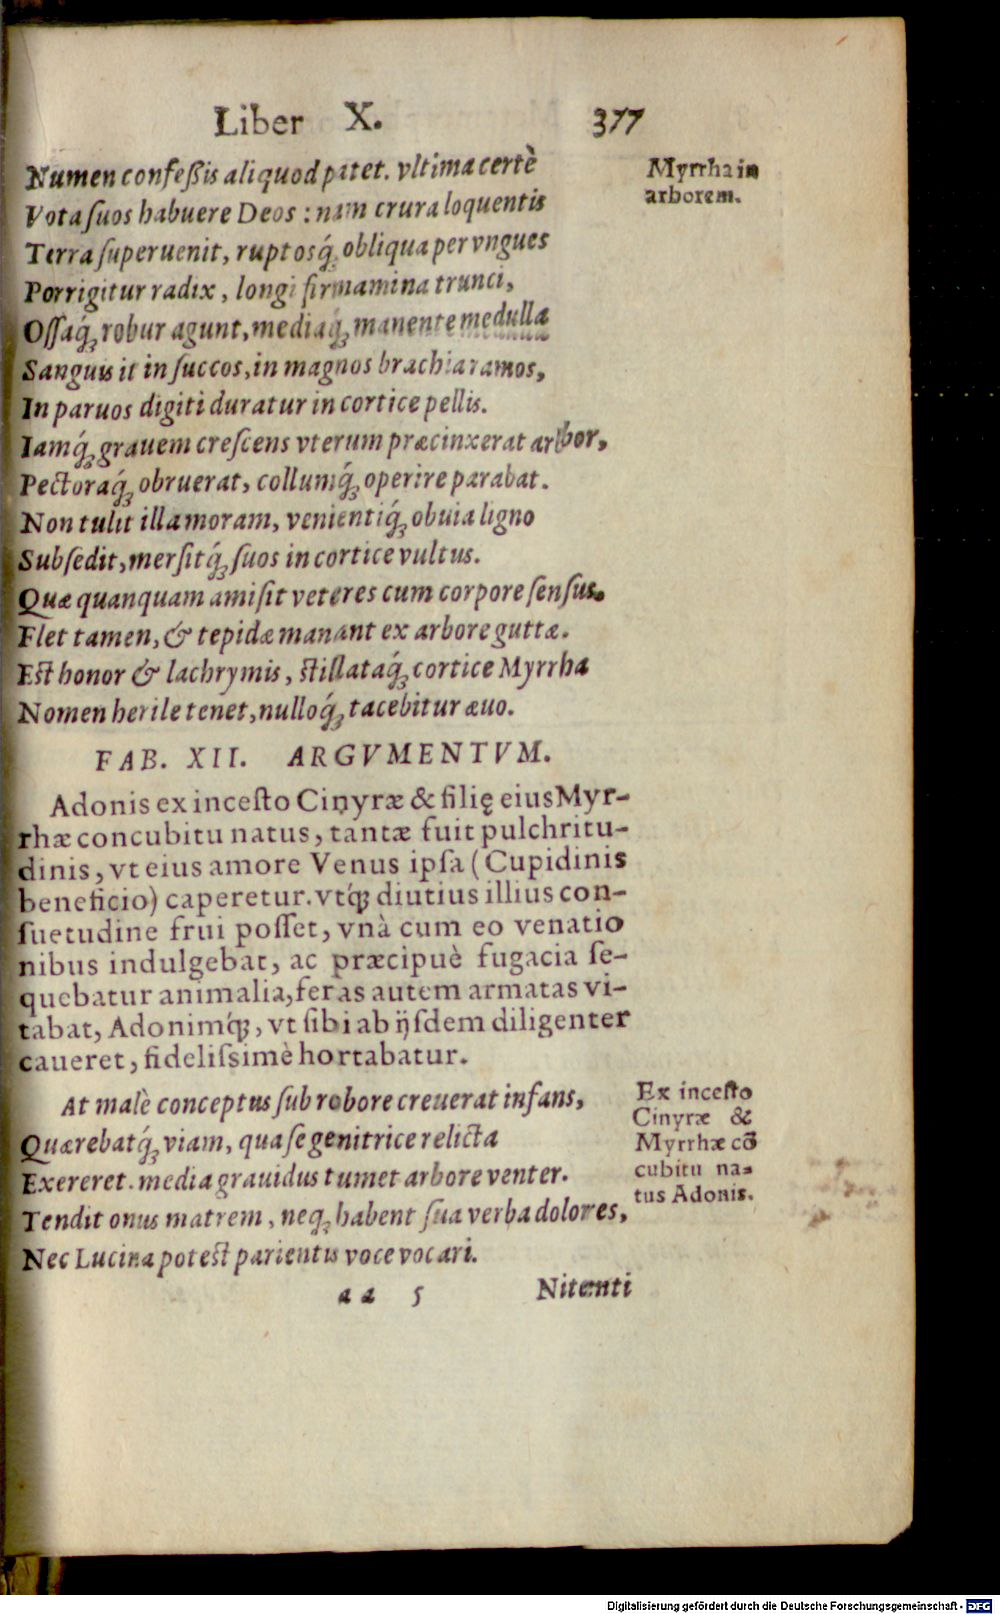 Liber X. 377
Numen confeßis aliquod patet. vltima certè
Vota ſuos habuere Deos : nam crura loquentis
Terra ſuperuenit, ruptosq́ꝫ obliqua per vngues
Porrigitur radix, longi firmamina trunci,
Oſſaq́ꝫ robur agunt, mediaq́ꝫ manente medulla
Sanguis it in ſuccos, in magnos brachia ramos,
In paruos digiti duratur in cortice pellis.
Iamq́ꝫ grauem creſcens vterum præcinxerat arbor,
Pectoraq́ꝫ obruerat, collumq́ꝫ operire parabat.
Non tulit illa moram, venientiq́ꝫ obuia ligno
Subſedit, merſitq́ꝫ ſuos in cortice vultus.
Quæ quanquam amiſit veteres cum corpore ſenſus.
Flet tamen, & tepidæ manant ex arbore guttæ.
Est honor & lachrymis, stillataq́ꝫ cortice Myrrha
Nomen herile tenet, nulloq́ꝫ tacebitur æuo.
Myrrha in
arborem.
FAB. XII. ARGVMENTVM.
Adonis ex inceſto Cinyræ & filię eius Myr-
rhæ concubitu natus, tantæ fuit pulchritu-
dinis, vt eius amore Venus ipſa (Cupidinis
beneficio) caperetur. vtq́ꝫ diutius illius con-
ſuetudine frui poſſet, vnà cum eo venatio
nibus indulgebat, ac præcipuè fugacia ſe-
quebatur animalia, feras autem armatas vi-
tabat, Adonimq́ꝫ, vt ſibi ab ijſdem diligenter
caueret, fideliſsimè hortabatur.
At malè conceptus ſub robore creuerat infans,
Quærebatq́ꝫ viam, qua ſe genitrice relicta
Exereret. media grauidus tumet arbore venter.
Tendit onus matrem, neqꝫ habent ſua verba dolores,
Nec Lucina potest parientis voce vocari.
Ex inceſto
Cinyræ &
Myrrhæ cō
cubitu na-
tus Adonis.
aa 5 Nitenti
Digitalisierung gefördert durch die Deutsche Forschungsgemeinschaft - DFG